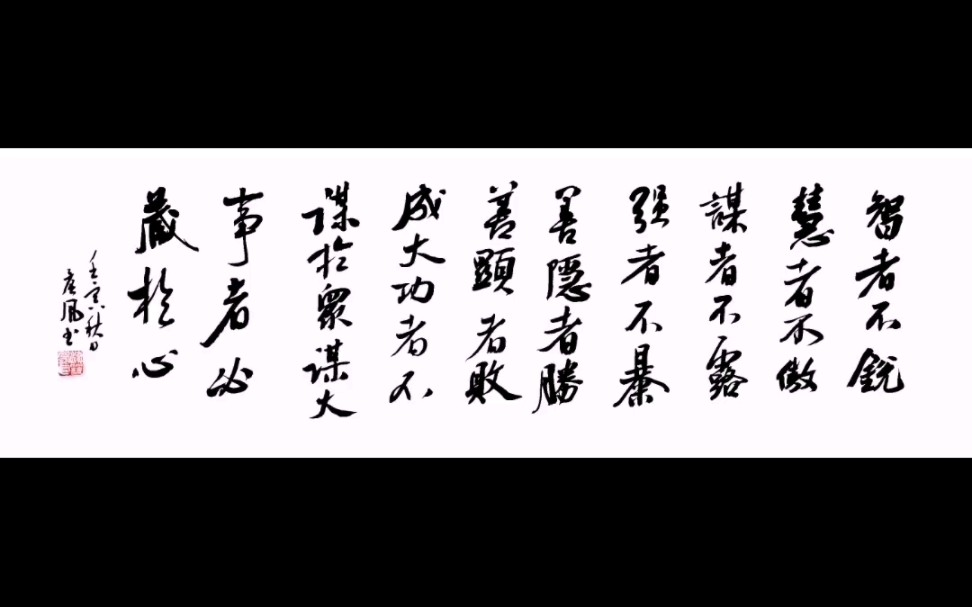 智者不銳
慧者不傲
謀者不露
强者不暴
善隱者勝
善顯者敗
成大功者不
謀於眾謀大
事者必
藏於心
壬寅秋日